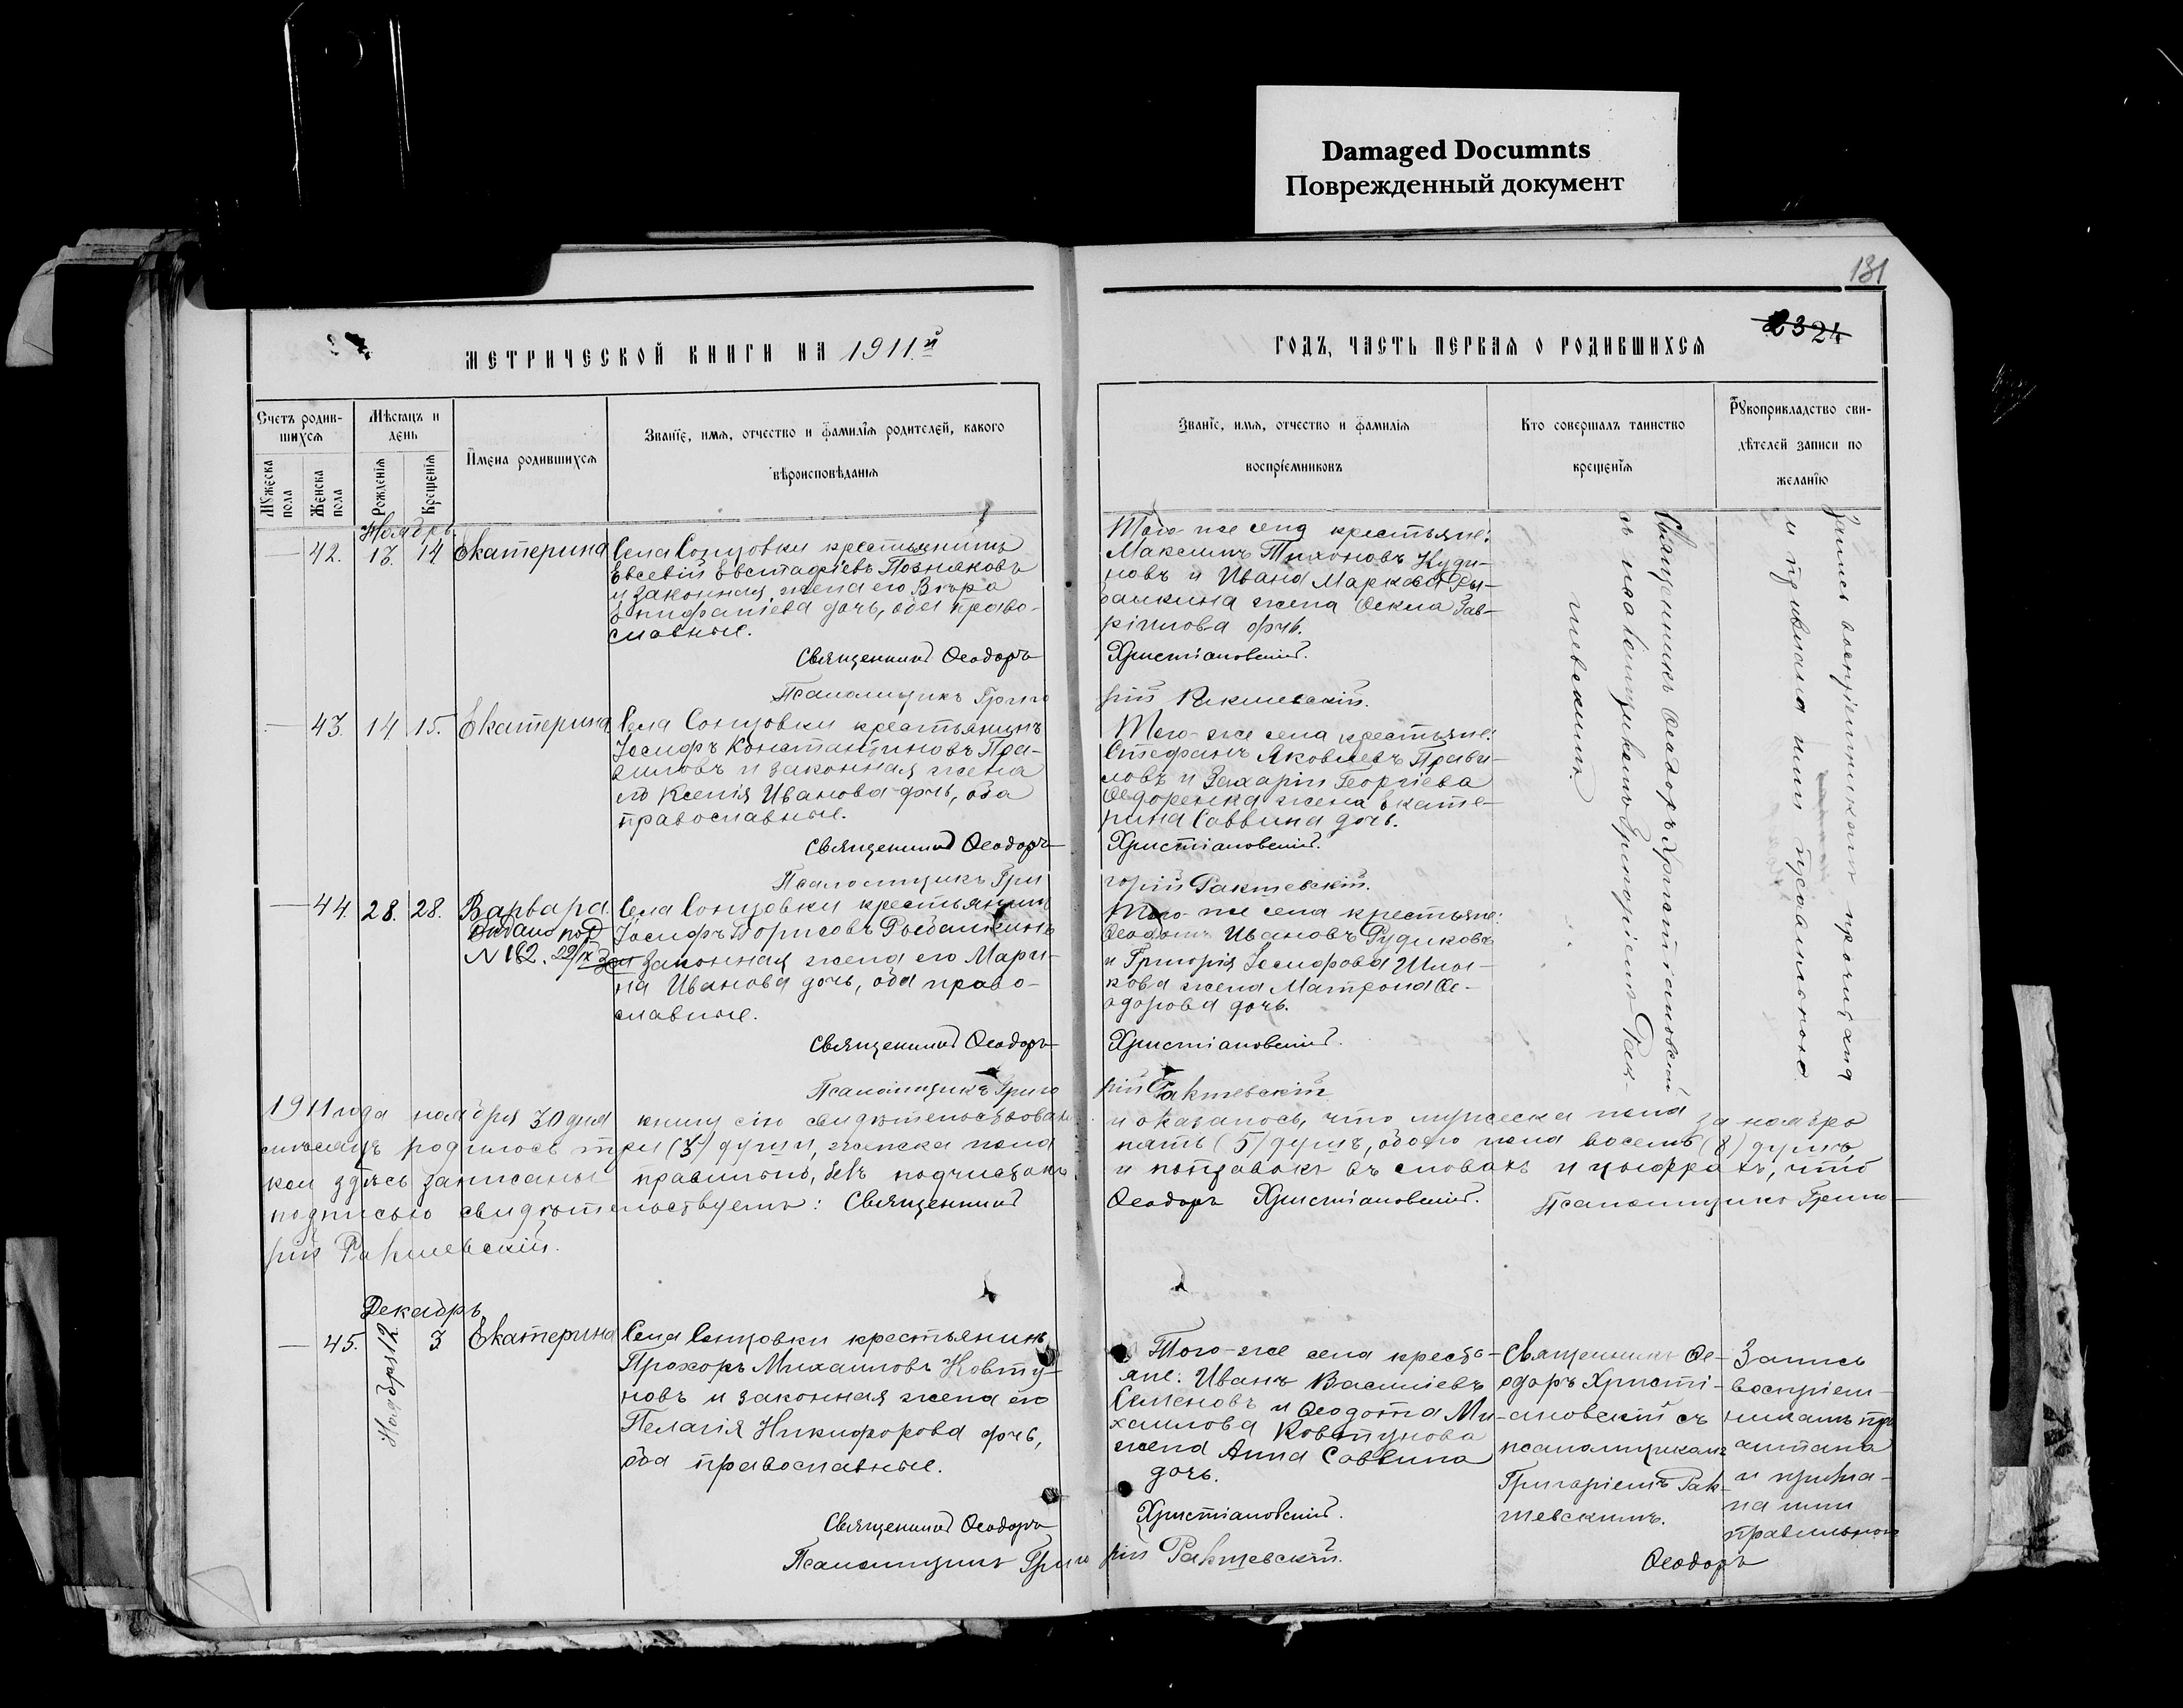 Damaged Documnts
Поврежденный документ
131
2324
МЕТРИЧЕСКОЙ КНИГИ НА 1911й
ГОДЪ, ЧАСТЬ ПЕРВАЯ О РОДИВШИХСЯ
Счетъ родив-
шихся
Мужеска пола
Женска пола
Мѣсяцъ и
день
Рожденія
Крещенія
Имена родившихся
Званіе, имя, отчество и фамилія родителей, какого
вѣроисповѣданія
Званіе, имя, отчество и фамилія
воспріемниковъ
Кто совершалъ таинство
крещенія
Рукоприкладство сви-
дѣтелей записи по
желанію
Ноябрь
42. 13. 14 Екатерина
Села Сонцовки крестьянинъ
Евсевій Евстафіевъ Позняковъ
и законная жена его Вѣра
Епифаніева дочь, оба право-
славные.
Священникъ Ѳеодоръ
Псаломщикъ Григо
Того-же села крестьяне:
Максимъ Тихоновъ Куди-
новъ и Ивана Маркова Ры-
балкина жена Ѳекла Гав-
ріилова дочь.
Христіановскій.
рій Ракшевскій.
43. 14 15. Екатерина
Села Сонцовки крестьянинъ
Іосифъ Константиновъ Пра-
виловъ и законная жена
его Ксенія Иванова дочь, оба
православные.
Священникъ Ѳеодоръ
Псаломщикъ Гри
Того-же села крестьяне:
Стефанъ Яковлевъ Прави-
ловъ и Захарія Георгіева
Ѳедоренка жена Екате-
рина Саввина дочь.
Христіановскій.
горій Ракшевскій.
44. 28. 28. Варвара.
Выдано под
N 162. 22/IX
Села Сонцовки крестьянинъ
Іосифъ Борисовъ Рыбалкинъ
и законная жена его Мари-
на Иванова дочь, оба право-
славные.
Священникъ Ѳеодоръ
Псаломщикъ Григо
Того-же села крестьяне:
Ивановъ Рудиковъ
и Григорія Іосифова
жена Матрона Ѳе-
одорова дочь.
Христіановскій.
рій Ракшевскій
Священникъ Ѳеодоръ Христіановскій
съ псаломщикомъ Григоріемъ Рак-
шевскимъ.
Запись воспріемникамъ прочитана
и признана ими правильною.
1911 года ноября 30 дня книгу сію свидѣтельствовали и оказалось, что мужеска пола за ноябрь
мѣсяцъ родилось три (3) души, женска пола пять (5) душъ, обоего пола восемь (8) душъ,
кои здѣсь записаны правильно, безъ подчистокъ и поправокъ въ словахъ и цыфрахъ, что
подписью свидѣтельствуемъ: Священникъ Ѳеодоръ Христіановскій. Псаломщикъ Григо-
рій Ракшевскій.
Декабрь
45. Ноября 12 3 Екатерина
Села Сонцовки крестьянинъ
Прохоръ Михаиловъ Ковту-
новъ и законная жена его
Пелагія Никифорова дочь,
оба православные.
Священникъ Ѳеодоръ
Псаломщикъ Григо
Того-же села кресть-
яне: Иванъ Василіевъ
Семеновъ и Ѳеодота Ми-
хаилова Ковтунова
жена Анна Саввина
дочь.
Христіановскій.
рій Ракшевскій.
Священникъ Ѳе-
одоръ Христі-
ановскій съ
псаломщикомъ
Григоріемъ Рак-
шевскимъ.
Запись
воспріем-
никамъ про
читана
и призна-
на ими
правильною
Ѳеодоръ